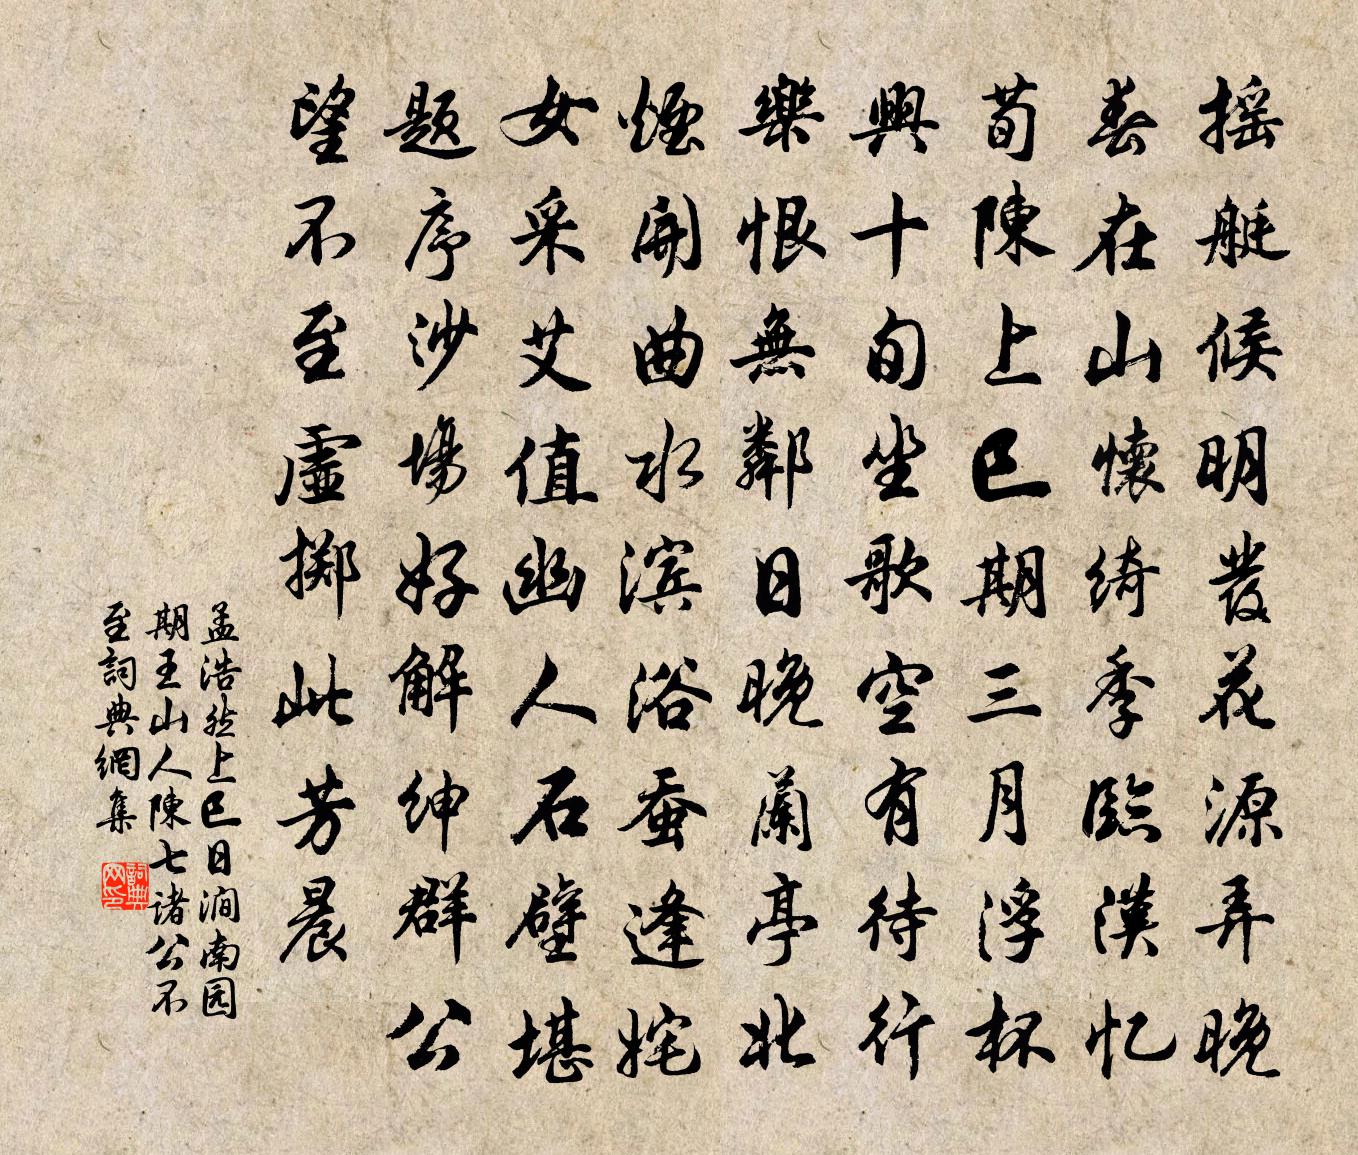 摇艇候明發花源弄晚
春在山懷綺季臨漢忆
荀陳上巳期三月浮杯
興十旬坐歌空有待行
樂恨無鄰日晚蘭亭北
煙開曲水滨浴蚕逢姹
女采艾值幽人石壁堪
题序沙場好解紳群公
望不至虛掷此芳晨
孟浩然上巳日澗南园
期王山人陳七诸公不
至詞典網集
詞典网印